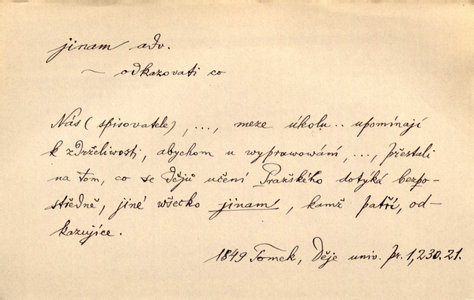 jinam adv.
~ odkazovati co
Nás (spisovatele), ..., meze úkolu .. upomínají
k zdrželivosti, abychom u vyprawowání, ..., přestali
na tom, co se dějů učení Pražského dotýká bezpo-
středně, jiné wšecko jinam, kamž patří, od-
kazujíce.
1849 Tomek, Děje univ. pr. 1,230.21.